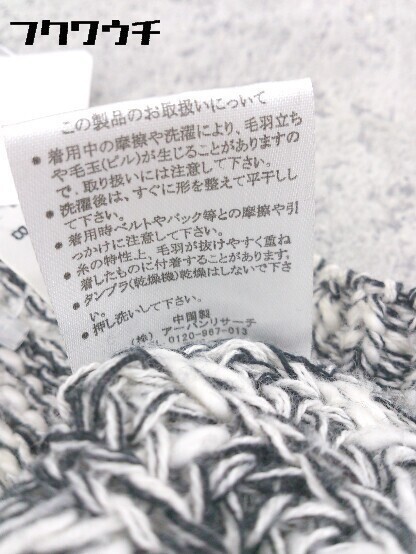 フクワウチ
この製品のお取扱いについて
● 着用中の摩擦や洗濯により、毛羽立ち
や毛玉(ピル)が生じることがありますの
で、取り扱いには注意して下さい。
● 洗濯後は、すぐに形を整えて平干しし
て下さい。
● 着用時ベルトやバック等との摩擦や引
っかけに注意して下さい。
● 糸の特性上、毛羽が抜けやすく重ね
着したものに付着することがあります。
● タンブラ(乾燥機)乾燥はしないで下さ
い。
● 押し洗いして下さい。
中国製
(株) アーバンリサーチ
TEL 0120-967-013
8